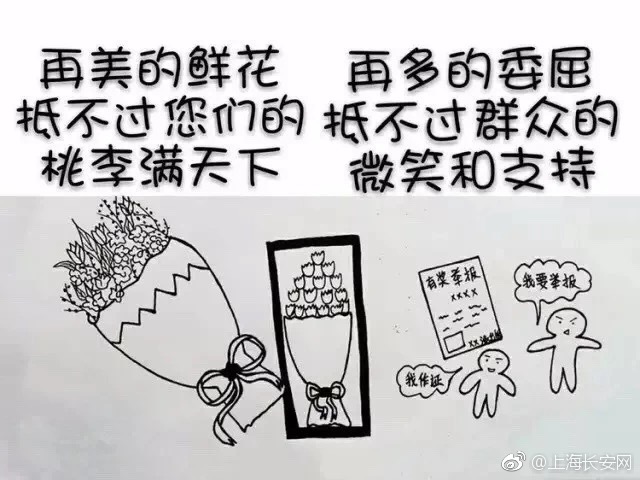 再美的鲜花
抵不过您们的
桃李满天下
再多的委屈
抵不过群众的
微笑和支持
有奖举报
xxxx
我要举报
我作证
@上海长安网